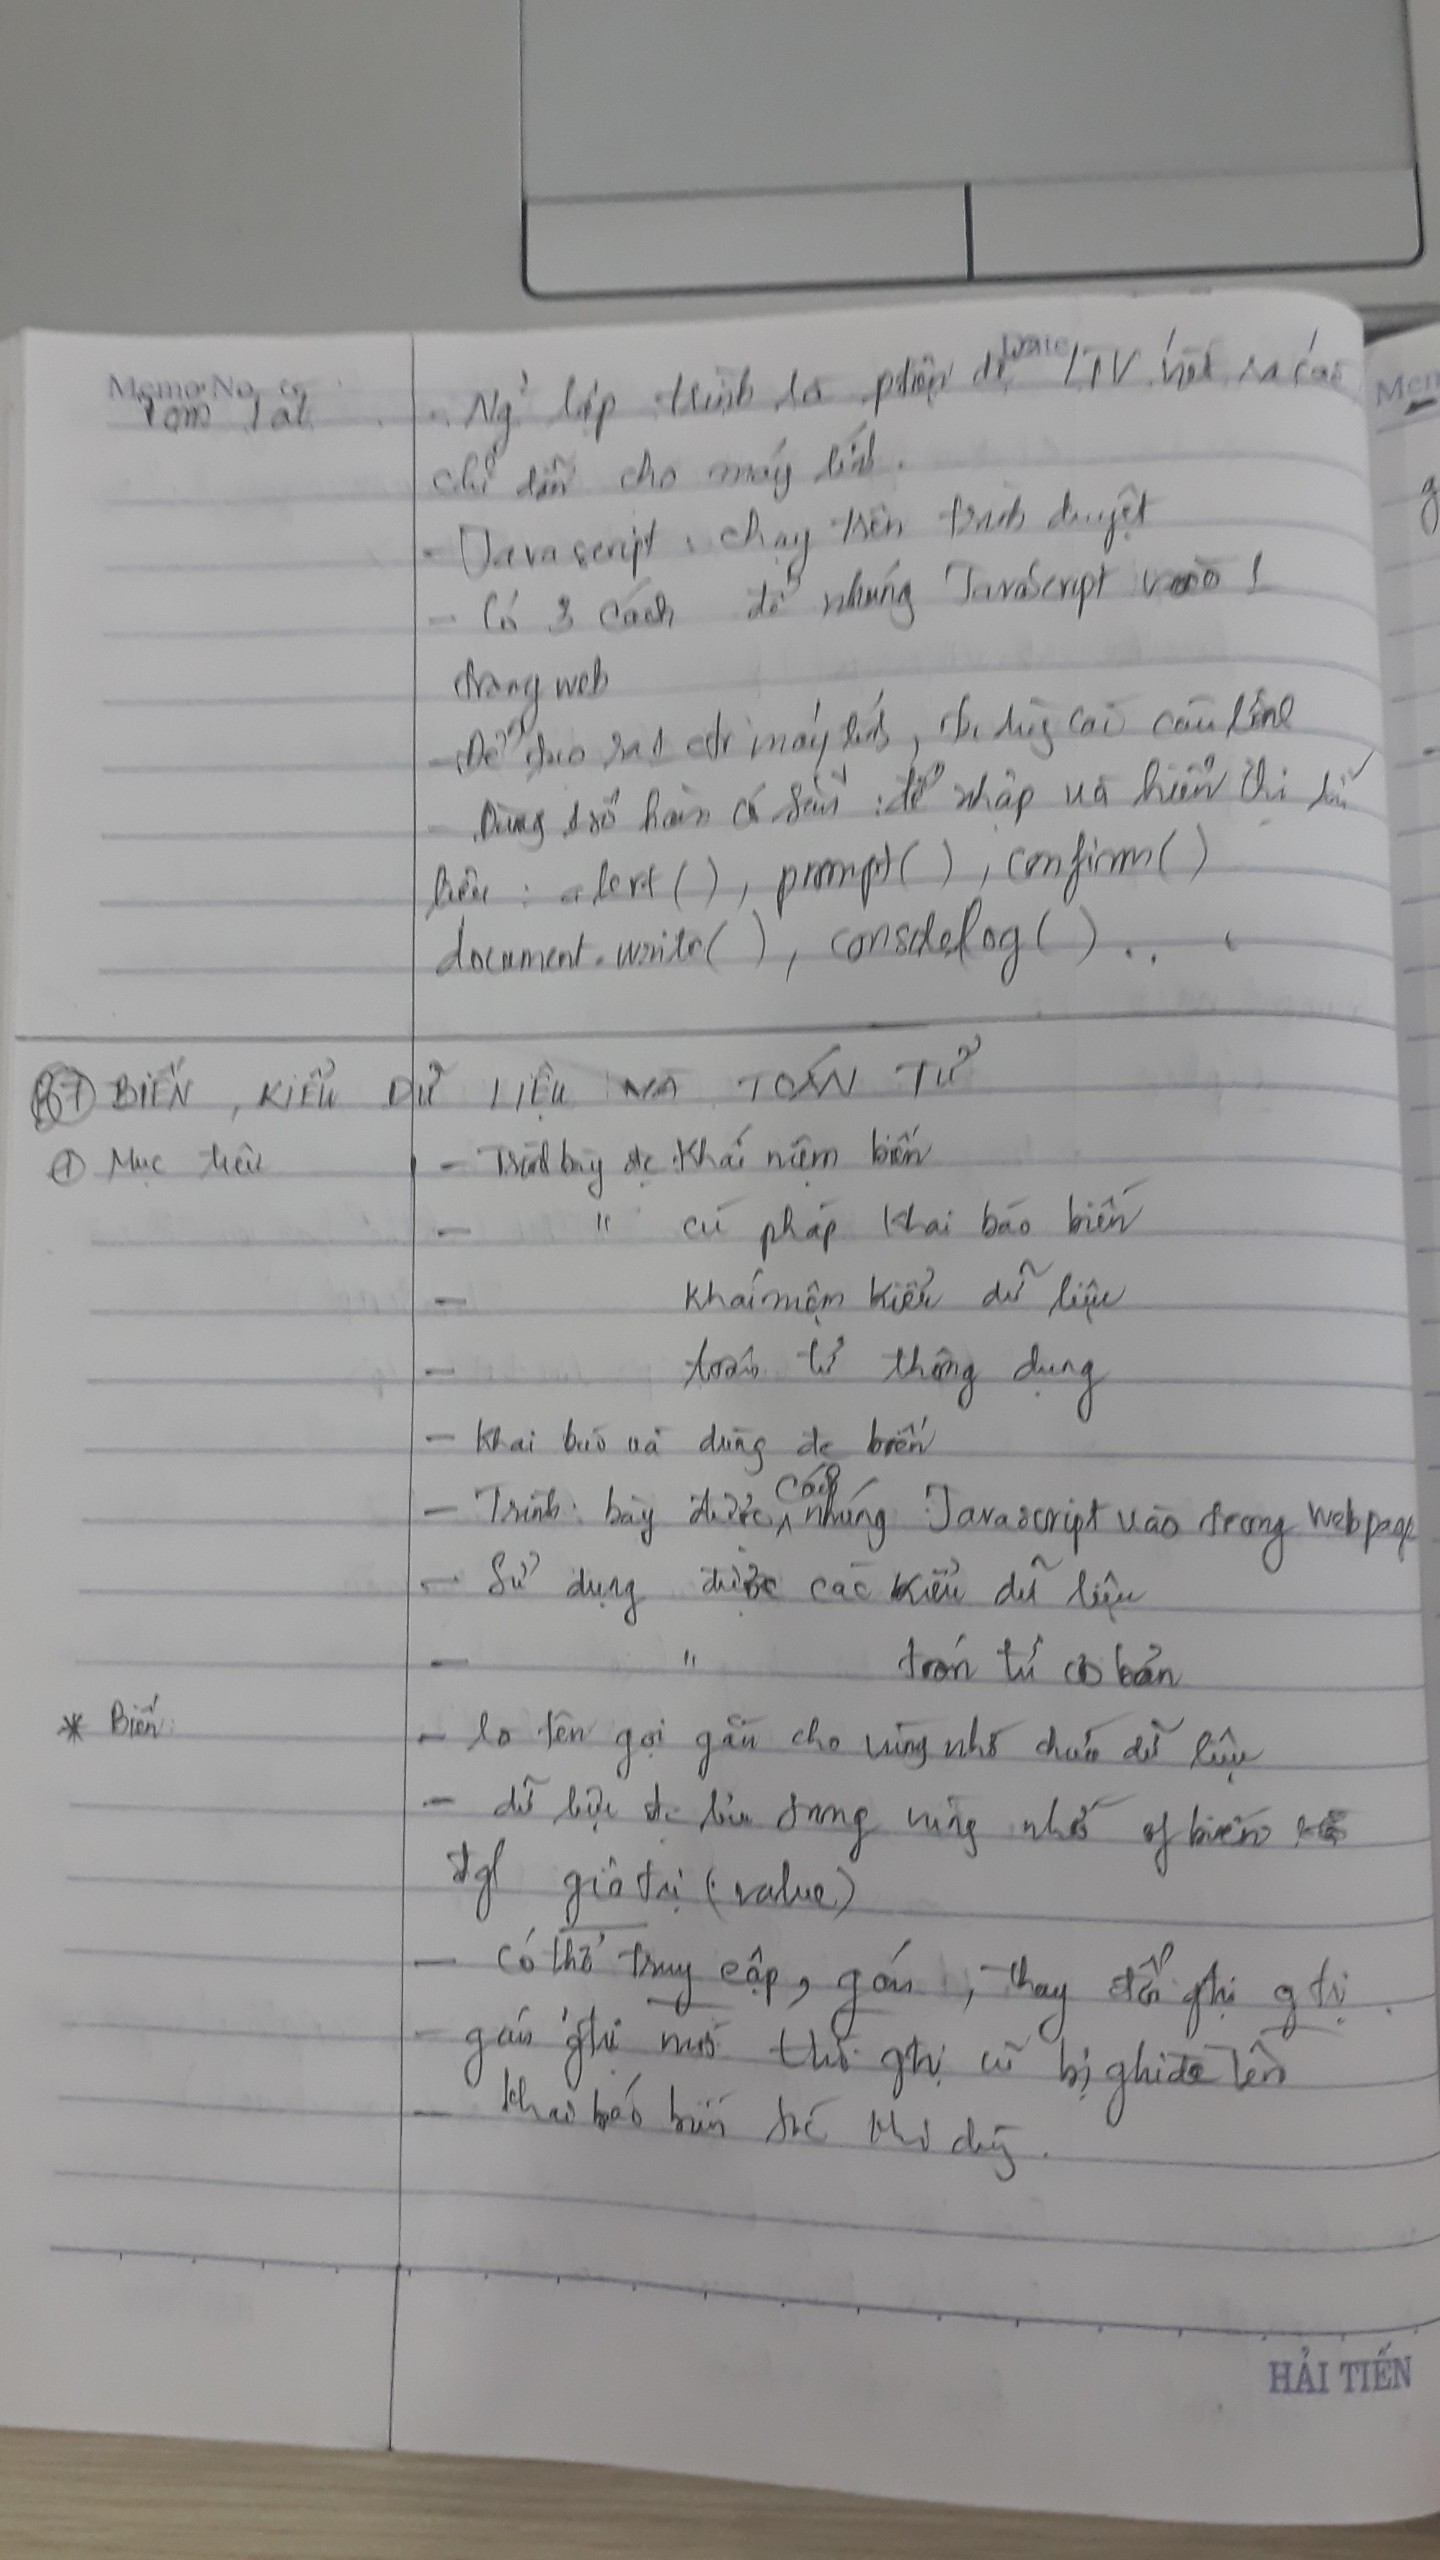 Memo No.
Date
Tóm Tắt
- Ng² lập trình là ptiện để LTV viết ra các
chỉ dẫn cho máy tính.
- Javascript : chạy trên trình duyệt
- Có 3 cách để nhúng JavaScript vào 1
trang web
- Để máy tính, các câu lệnh
- Dùng 1 số hàm có sẵn : để nhập và hiển thị dữ
liệu : alert( ), prompt( ), confirm( )
document.write( ), console.log( ) ...
B7 BIẾN, KIỂU DỮ LIỆU VÀ TOÁN TỬ
① Mục tiêu
- Trình bày đc Khái niệm biến
- " cú pháp khai báo biến
- khái niệm kiểu dữ liệu
- toán tử thông dụng
- Khai báo và dùng đc biến
- Trình bày được cách nhúng Javascript vào trong webpage
- Sử dụng được các kiểu dữ liệu
- " toán tử cơ bản
* Biến:
- là tên gọi gắn cho vùng nhớ chứa dữ liệu
- dữ liệu đc lưu trong vùng nhớ of biến
đgl giá trị (value)
- có thể truy cập, gán, thay đổi gtrị
- gán gtrị mới thì gtrị cũ bị ghi đè lên
- khai báo biến trc khi dùng.
HẢI TIẾN